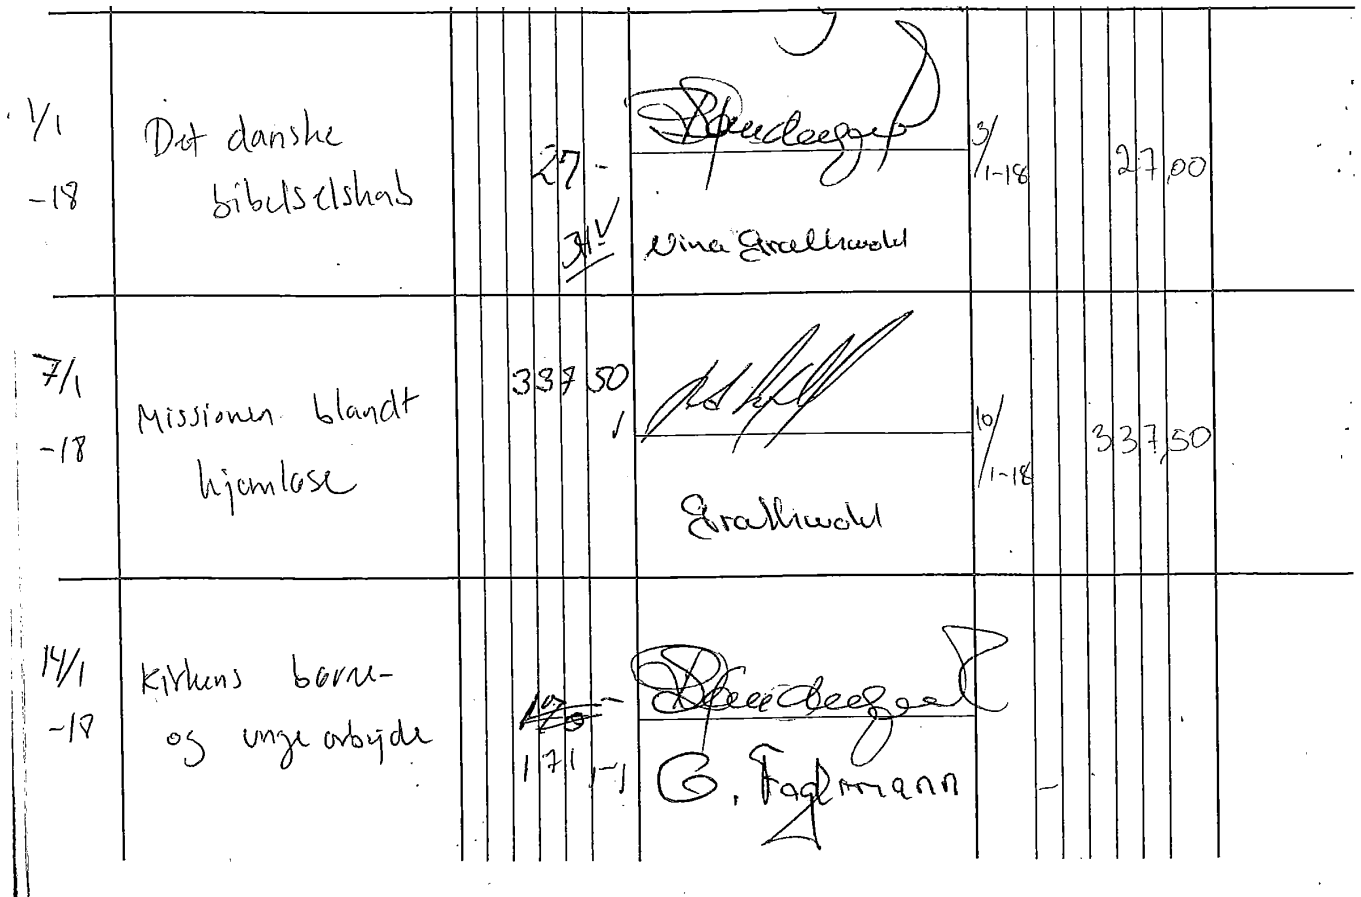 1/1
-18
Det danske
bibelselskab
27 -
Nina Grathwohl
3/1-18
27,00
7/1
-18
Missionen blandt
hjemløse
337 50
Grathwohl
10/1-18
337,50
14/1
-18
Kirkens børne-
og unge arbejde
171,-